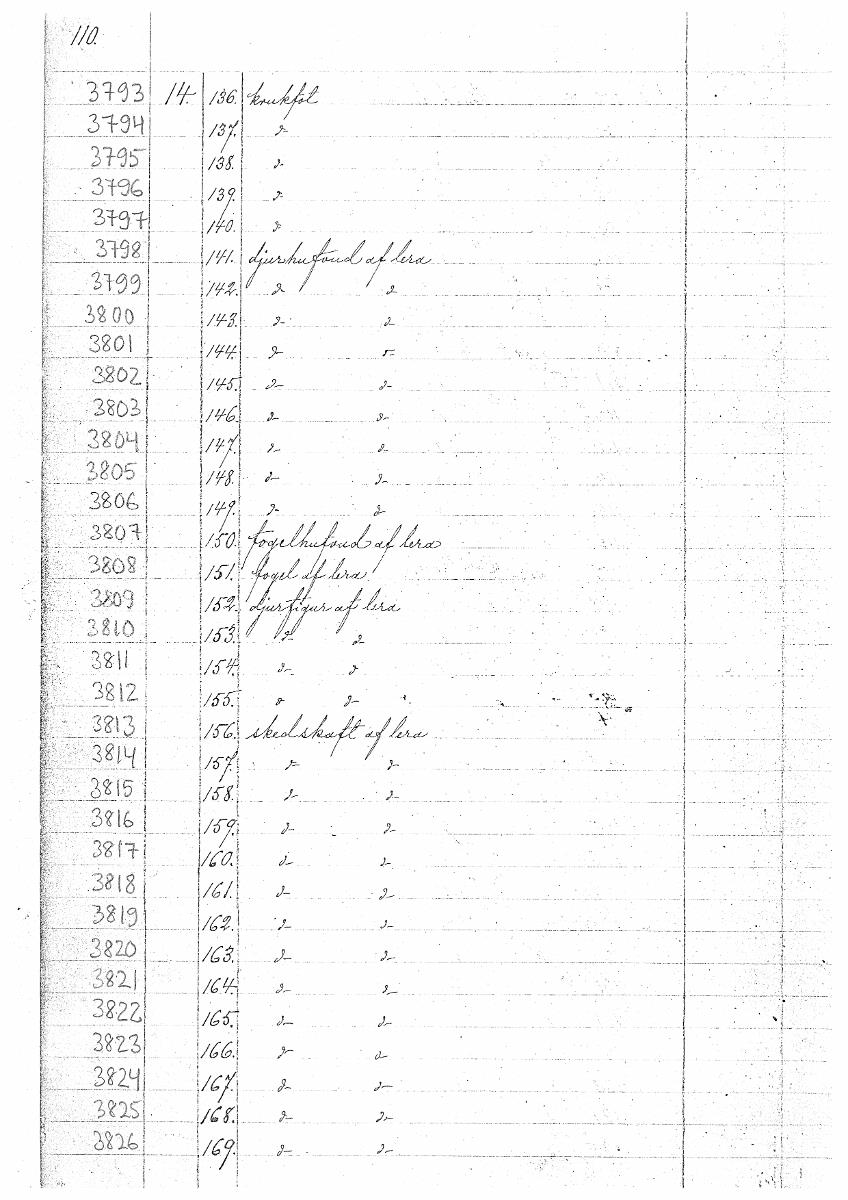 110.
3793 14. 136. krukfot
3794 137. d-
3795 138. d-
3796 139. d-
3797 140. d-
3798 141. djurhufoud af lera
3799 142. d- d-
3800 143. d- d-
3801 144. d- d-
3802 145. d- d-
3803 146. d- d-
3804 147. d- d-
3805 148. d- d-
3806 149. d- d-
3807 150. fogelhufoud af lera
3808 151. fogel af lera
3809 152. djurfigur af lera
3810 153. d- d-
3811 154. d- d-
3812 155. d- d-
3813 156. skedskaft af lera
3814 157. d- d-
3815 158. d- d-
3816 159. d- d-
3817 160. d- d-
3818 161. d- d-
3819 162. d- d-
3820 163. d- d-
3821 164. d- d-
3822 165. d- d-
3823 166. d- d-
3824 167. d- d-
3825 168. d- d-
3826 169. d- d-